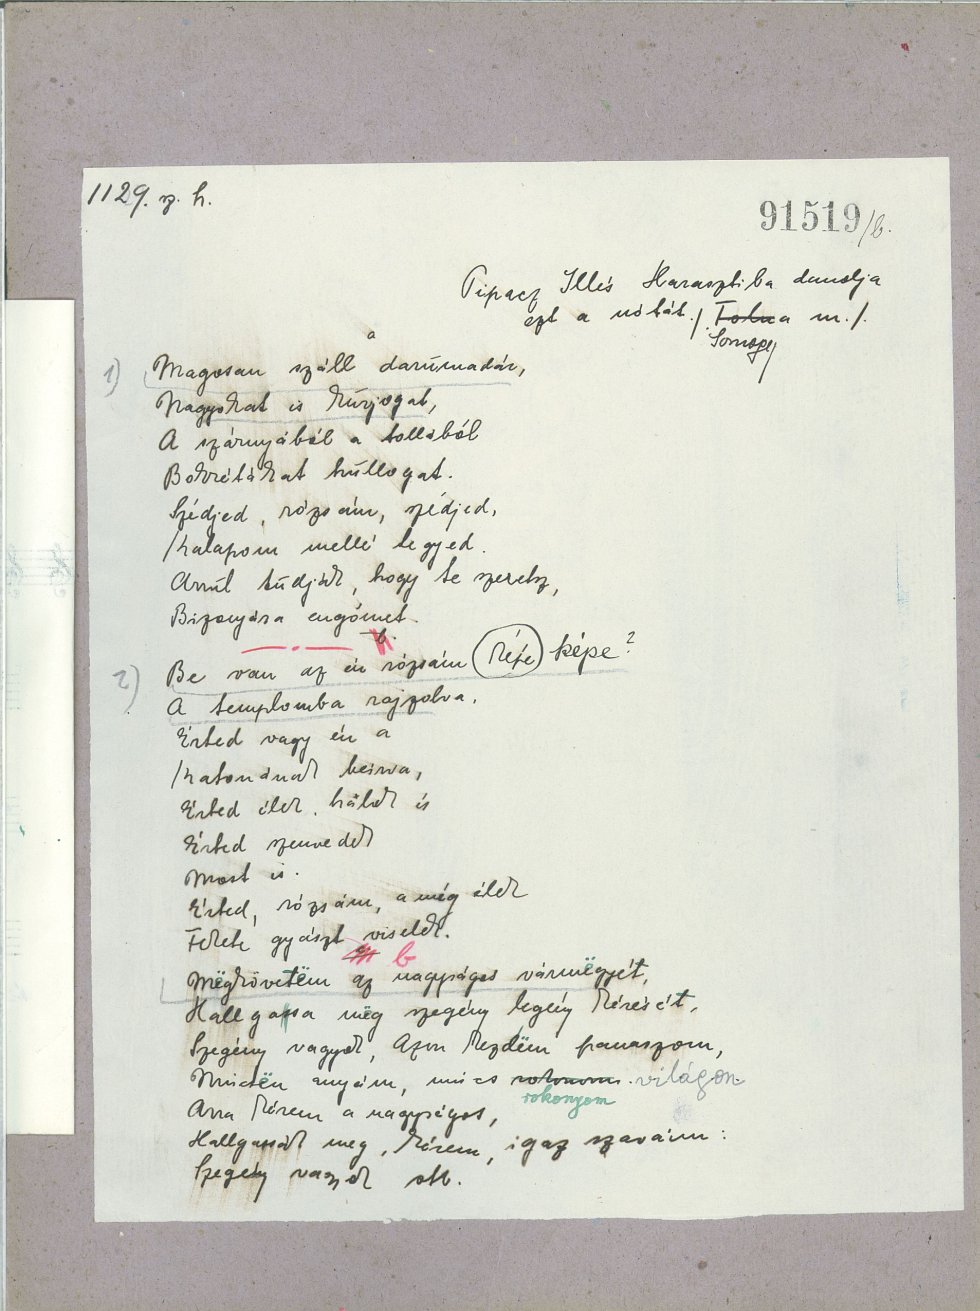 1129. sz. h.
91519/b.
Pipacz Illés Harasztiba danolja
ezt a nótát. /. Tolna m./.
Somogy
a
1) Magosan száll a darumadár,
Nagyokat is kurjogat,
A szárnyából a tollából
Bokrétákat hullogat.
Szédjed, rózsám, szédjed,
Kalapom mellé tegyed.
Arrul tudják, hogy te szeretsz,
Bizonyára engömet.
b.
2) Be van az én rózsám képe képe?
A templomba rajzolva.
Érted vagyék a
Katonának beirva,
Érted élek, hálok is
Érted szenvedek
Most is.
Érted, rózsám, a még élek
Fekete gyászt viselek.
b
Mëgkövetëm az nagyságos vármëgyét,
Hallgassa mëg szegény legény kérését,
Szegény vagyok, azon kezdëm panaszom,
Nincsën anyám, nincs rokonom. világon
rokonyom
Arra kérem a nagyságos,
Hallgassák meg, kérem, igaz szavaim:
Szegény vagyok stb.